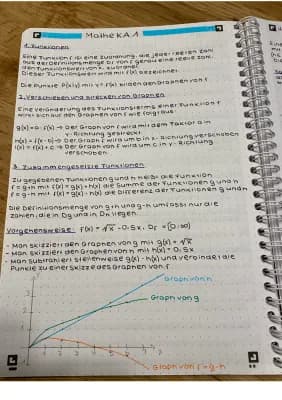 Mathe KA 1
1. Funktionen
Eine Funktion f ist eine Zuordnung, die jeder reellen Zahl
aus der Definitionsmenge Df von f genau eine reelle Zahl,
den Funktionswert von x, zuordnet.
Dieser Funktionswert wird mit f(x) bezeichnet.
Die Punkte P(x|y) mit y = f(x) bilden den Graphen von f.
2. Verschieben und strecken von Graphen
Eine Veränderung des Funktionsterms einer Funktion f
wirkt sich auf den Graphen von f wie folgt aus:
g(x) = a · f(x) → Der Graph von f wird mit dem Faktor a in
y-Richtung gestreckt.
h(x) = f(x-b) → Der Graph f wird um b in x-Richtung verschoben
i(x) = f(x) + c → Der Graph von f wird um c in y-Richtung
verschoben.
3. Zusammengesetzte Funktionen
Zu gegebenen Funktionen g und h heißt die Funktion
f = g+h mit f(x) = g(x) + h(x) die Summe der Funktionen g und h
f = g-h mit f(x) = g(x) - h(x) die Differenz der Funktionen g und h
Die Definitionsmenge von g+h und g-h umfasst nur die
Zahlen, die in Dg und in Dh liegen.
Vorgehensweise: f(x) = √x - 0,5x, Df = [0; ∞)
- Man skizziert den Graphen von g mit g(x) = √x
- Man skizziert den Graphen von h mit h(x) = 0,5x
- Man subtrahiert stellenweise g(x) - h(x) und verbindet die
Punkte zu einer Skizze des Graphen von f
Graph von h
Graph von g
Graph von f = g-h